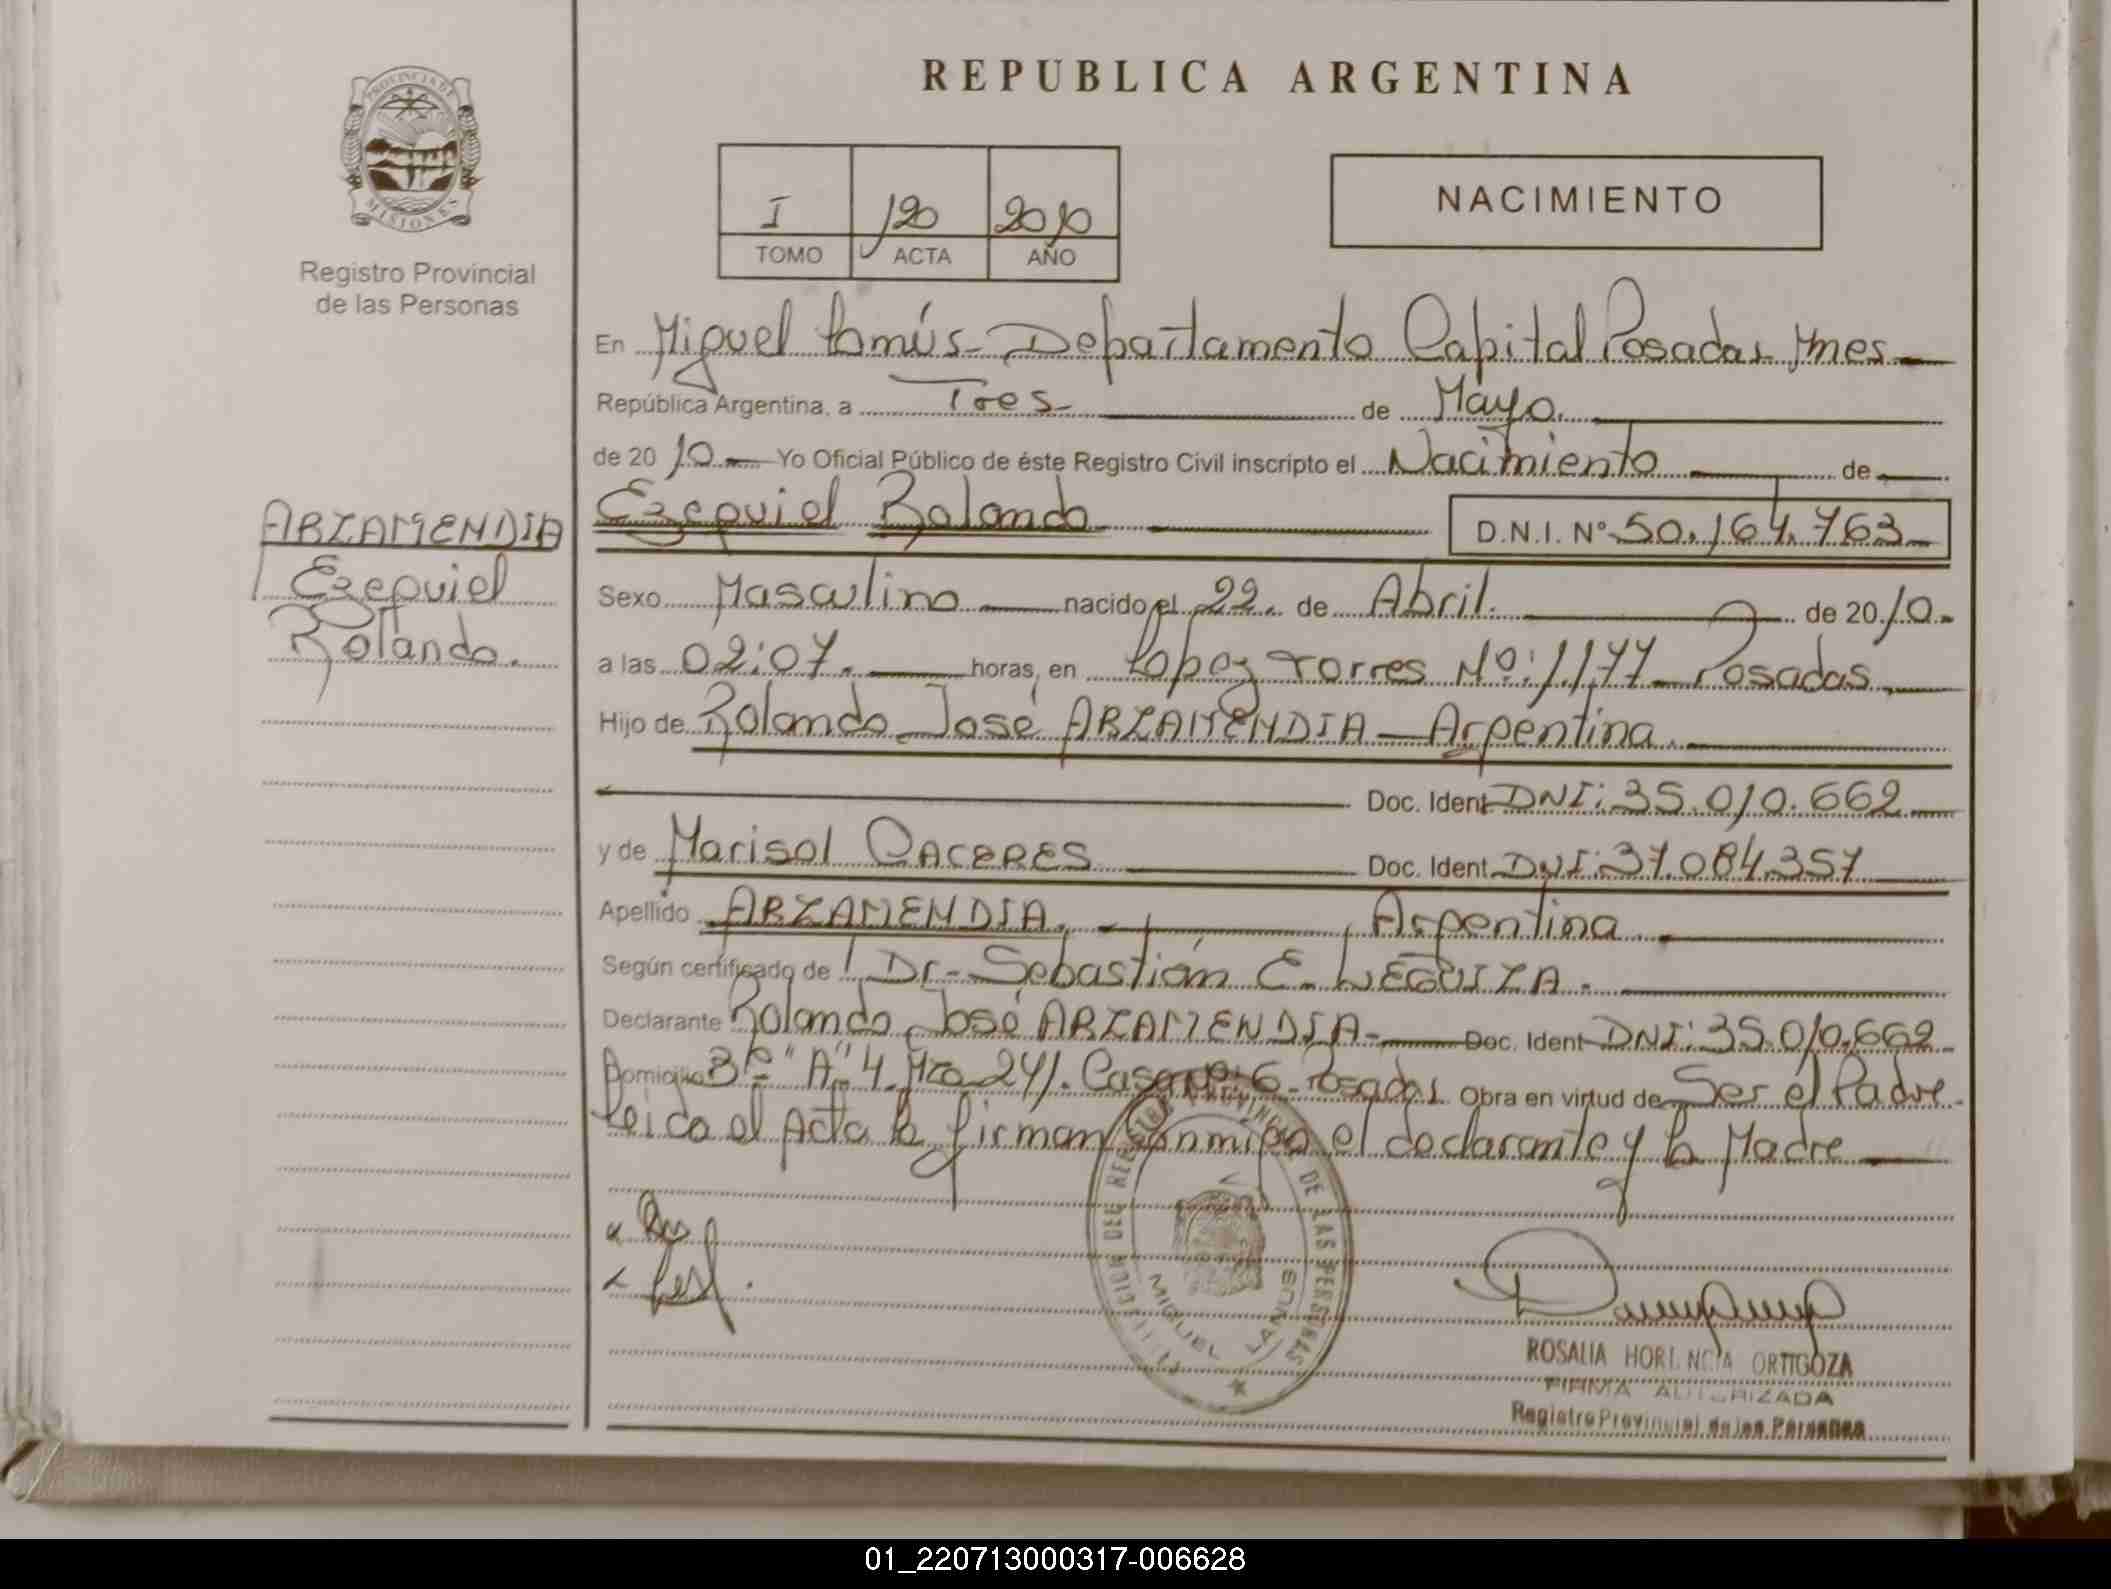 REPUBLICA ARGENTINA
PROVINCIA DE
MISIONES
Registro Provincial
de las Personas
I 120 2010
TOMO ACTA AÑO
NACIMIENTO
En Miguel Lanús - Departamento Capital Posadas Mnes
República Argentina, a Tres de Mayo
de 2010 Yo Oficial Público de éste Registro Civil inscripto el Nacimiento de
Ezequiel Rolando D.N.I. Nº 50.164.763
ARZAMENDIA
Ezequiel
Rolando.
Sexo Masculino nacido el 22 de Abril de 2010
a las 02:07 horas, en Lopez Torres Nº: 1177 Posadas
Hijo de Rolando José ARZAMENDIA - Argentina
Doc. Ident DNI: 35.010.662
y de Marisol CACERES Doc. Ident DNI: 37.084.357
Apellido ARZAMENDIA, Argentina
Según certificado de Dr. Sebastián E.
Declarante Rolando José ARZAMENDIA - Doc. Ident DNI: 35.010.662
Domicilio Bº "A" 4 Mza 241. Casa Nº: 6 - Posadas Obra en virtud de Ser el Padre
Leida el Acta la firman conmigo el declarante y la Madre
REGISTRO PROVINCIAL DE LAS PERSONAS
MIGUEL LANUS
ROSALIA HORTENCIA ORTIGOZA
FIRMA AUTORIZADA
Registro Provincial de las Personas
01_220713000317-006628